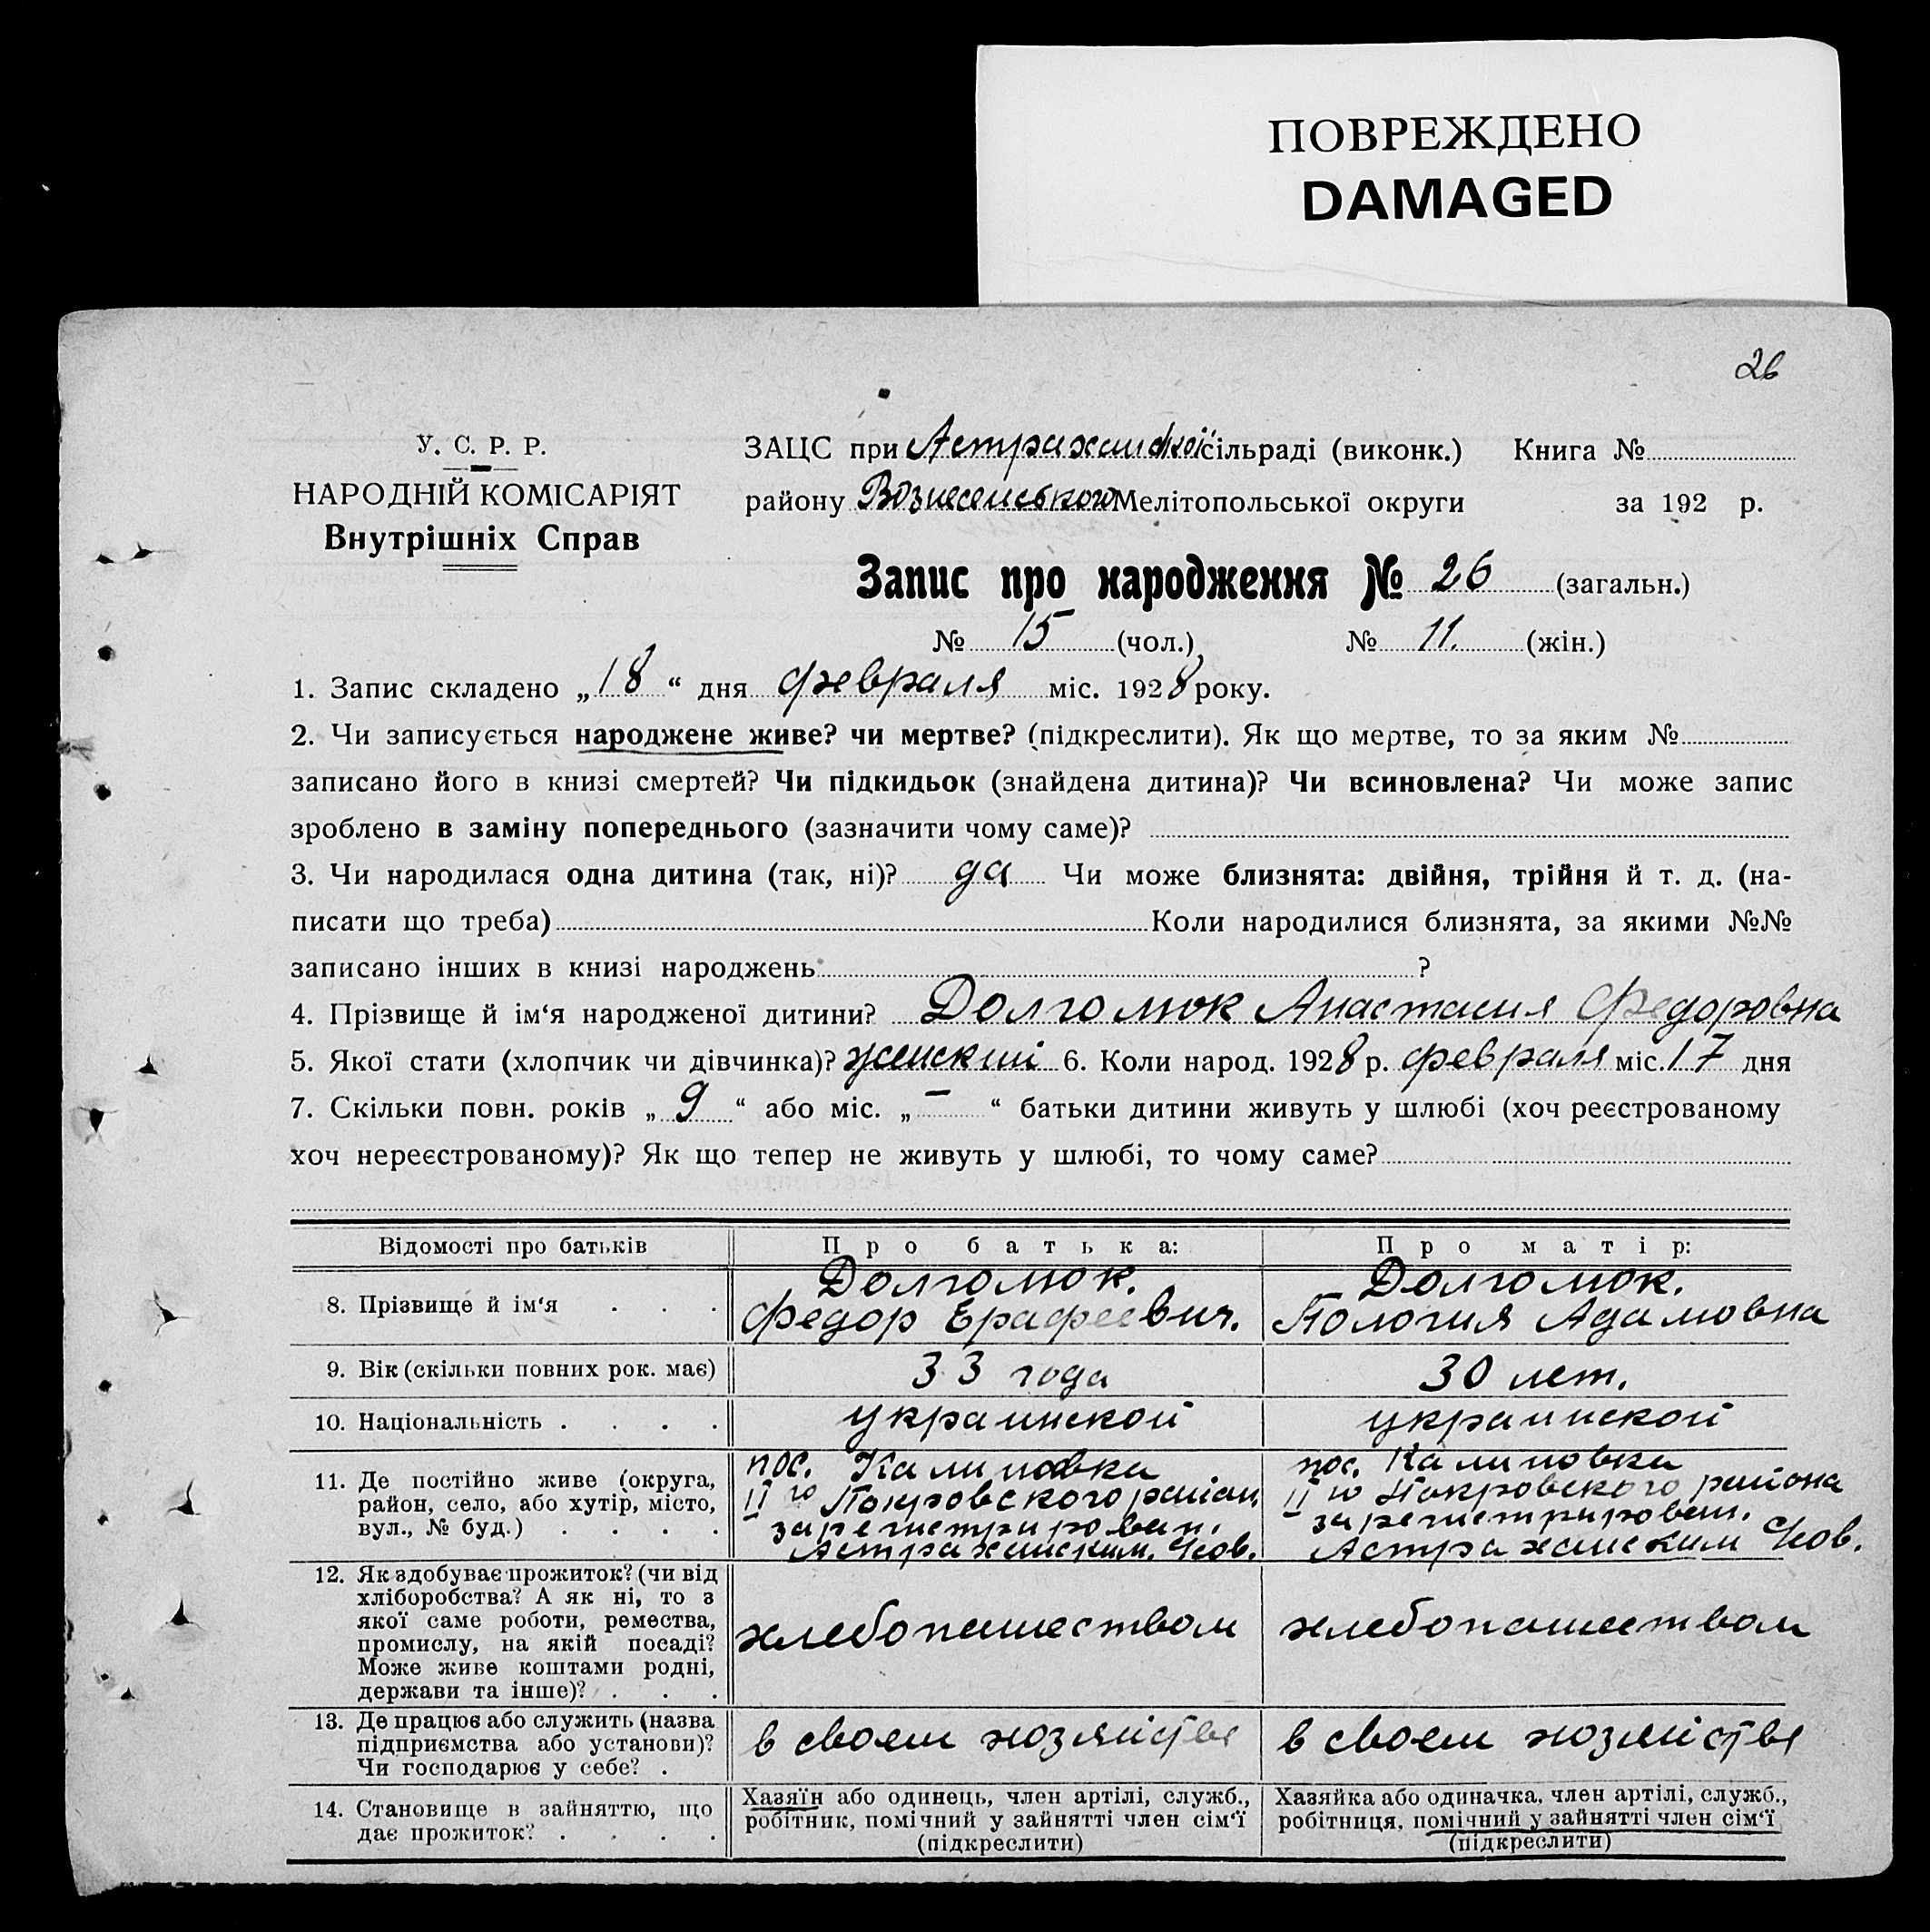 ПОВРЕЖДЕНО
DAMAGED
26
У. С. Р. Р.
НАРОДНІЙ КОМІСАРІЯТ
Внутрішніх Справ
ЗАЦС при Астраханской сільраді (виконк.) Книга №
району Вознесенського Мелітопольської округи за 192 р.
Запис про народження № 26 (загальн.)
№ 15 (чол.) № 11. (жін.)
1. Запис складено „18“ дня февраля міс. 1928 року.
2. Чи записується народжене живе? чи мертве? (підкреслити). Як що мертве, то за яким №
записано його в книзі смертей? Чи підкидьок (знайдена дитина)? Чи всиновлена? Чи може запис
зроблено в заміну попереднього (зазначити чому саме)?
3. Чи народилася одна дитина (так, ні)? да Чи може близнята: двійня, трійня й т. д. (на-
писати що треба) Коли народилися близнята, за якими №№
записано інших в книзі народжень ?
4. Прізвище й ім‘я народженої дитини? Долгомюк Анастасия Федоровна
5. Якої стати (хлопчик чи дівчинка)? женский 6. Коли народ. 1928 р. февраля міс. 17 дня
7. Скільки повн. років „9“ або міс. „–“ батьки дитини живуть у шлюбі (хоч реєстрованому
хоч нереєстрованому)? Як що тепер не живуть у шлюбі, то чому саме?
Відомості про батьків Про батька: Про матір:
8. Прізвище й ім‘я . . .
Долгомюк.
Федор Ерафеевич.
Долгомюк.
Пология Адамовна
9. Вік (скільки повних рок. має) 33 года 30 лет.
10. Національність . . . . украинской украинской
11. Де постійно живе (округа,
район, село, або хутір, місто,
вул., № буд.) . . . .
пос. Калиновка
II го Покровского район.
зарегистрирован.
Астраханским.
пос. Калиновка
II го Покровского района
зарегистрирован.
Астраханским
12. Як здобуває прожиток? (чи від
хліборобства? А як ні, то з
якої саме роботи, ремества,
промислу, на якій посаді?
Може живе коштами родні,
держави та інше)? . . .
хлебопашеством
хлебопашеством
13. Де працює або служить (назва
підприємства або установи)?
Чи господарює у себе? .
в своем хозяйстве
в своем хозяйстве
14. Становище в зайняттю, що
дає прожиток? . . . .
Хазяїн або одинець, член артілі, служб.,
робітник, помічний у зайнятті член сім‘ї
(підкреслити)
Хазяйка або одиначка, член артілі, служб.,
робітниця, помічний у зайнятті член сім‘ї
(підкреслити)